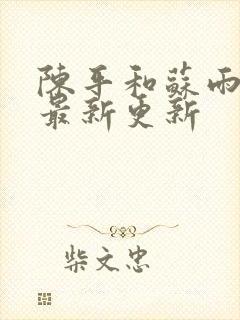 陳平和蘇雨
最新更新
柴文忠